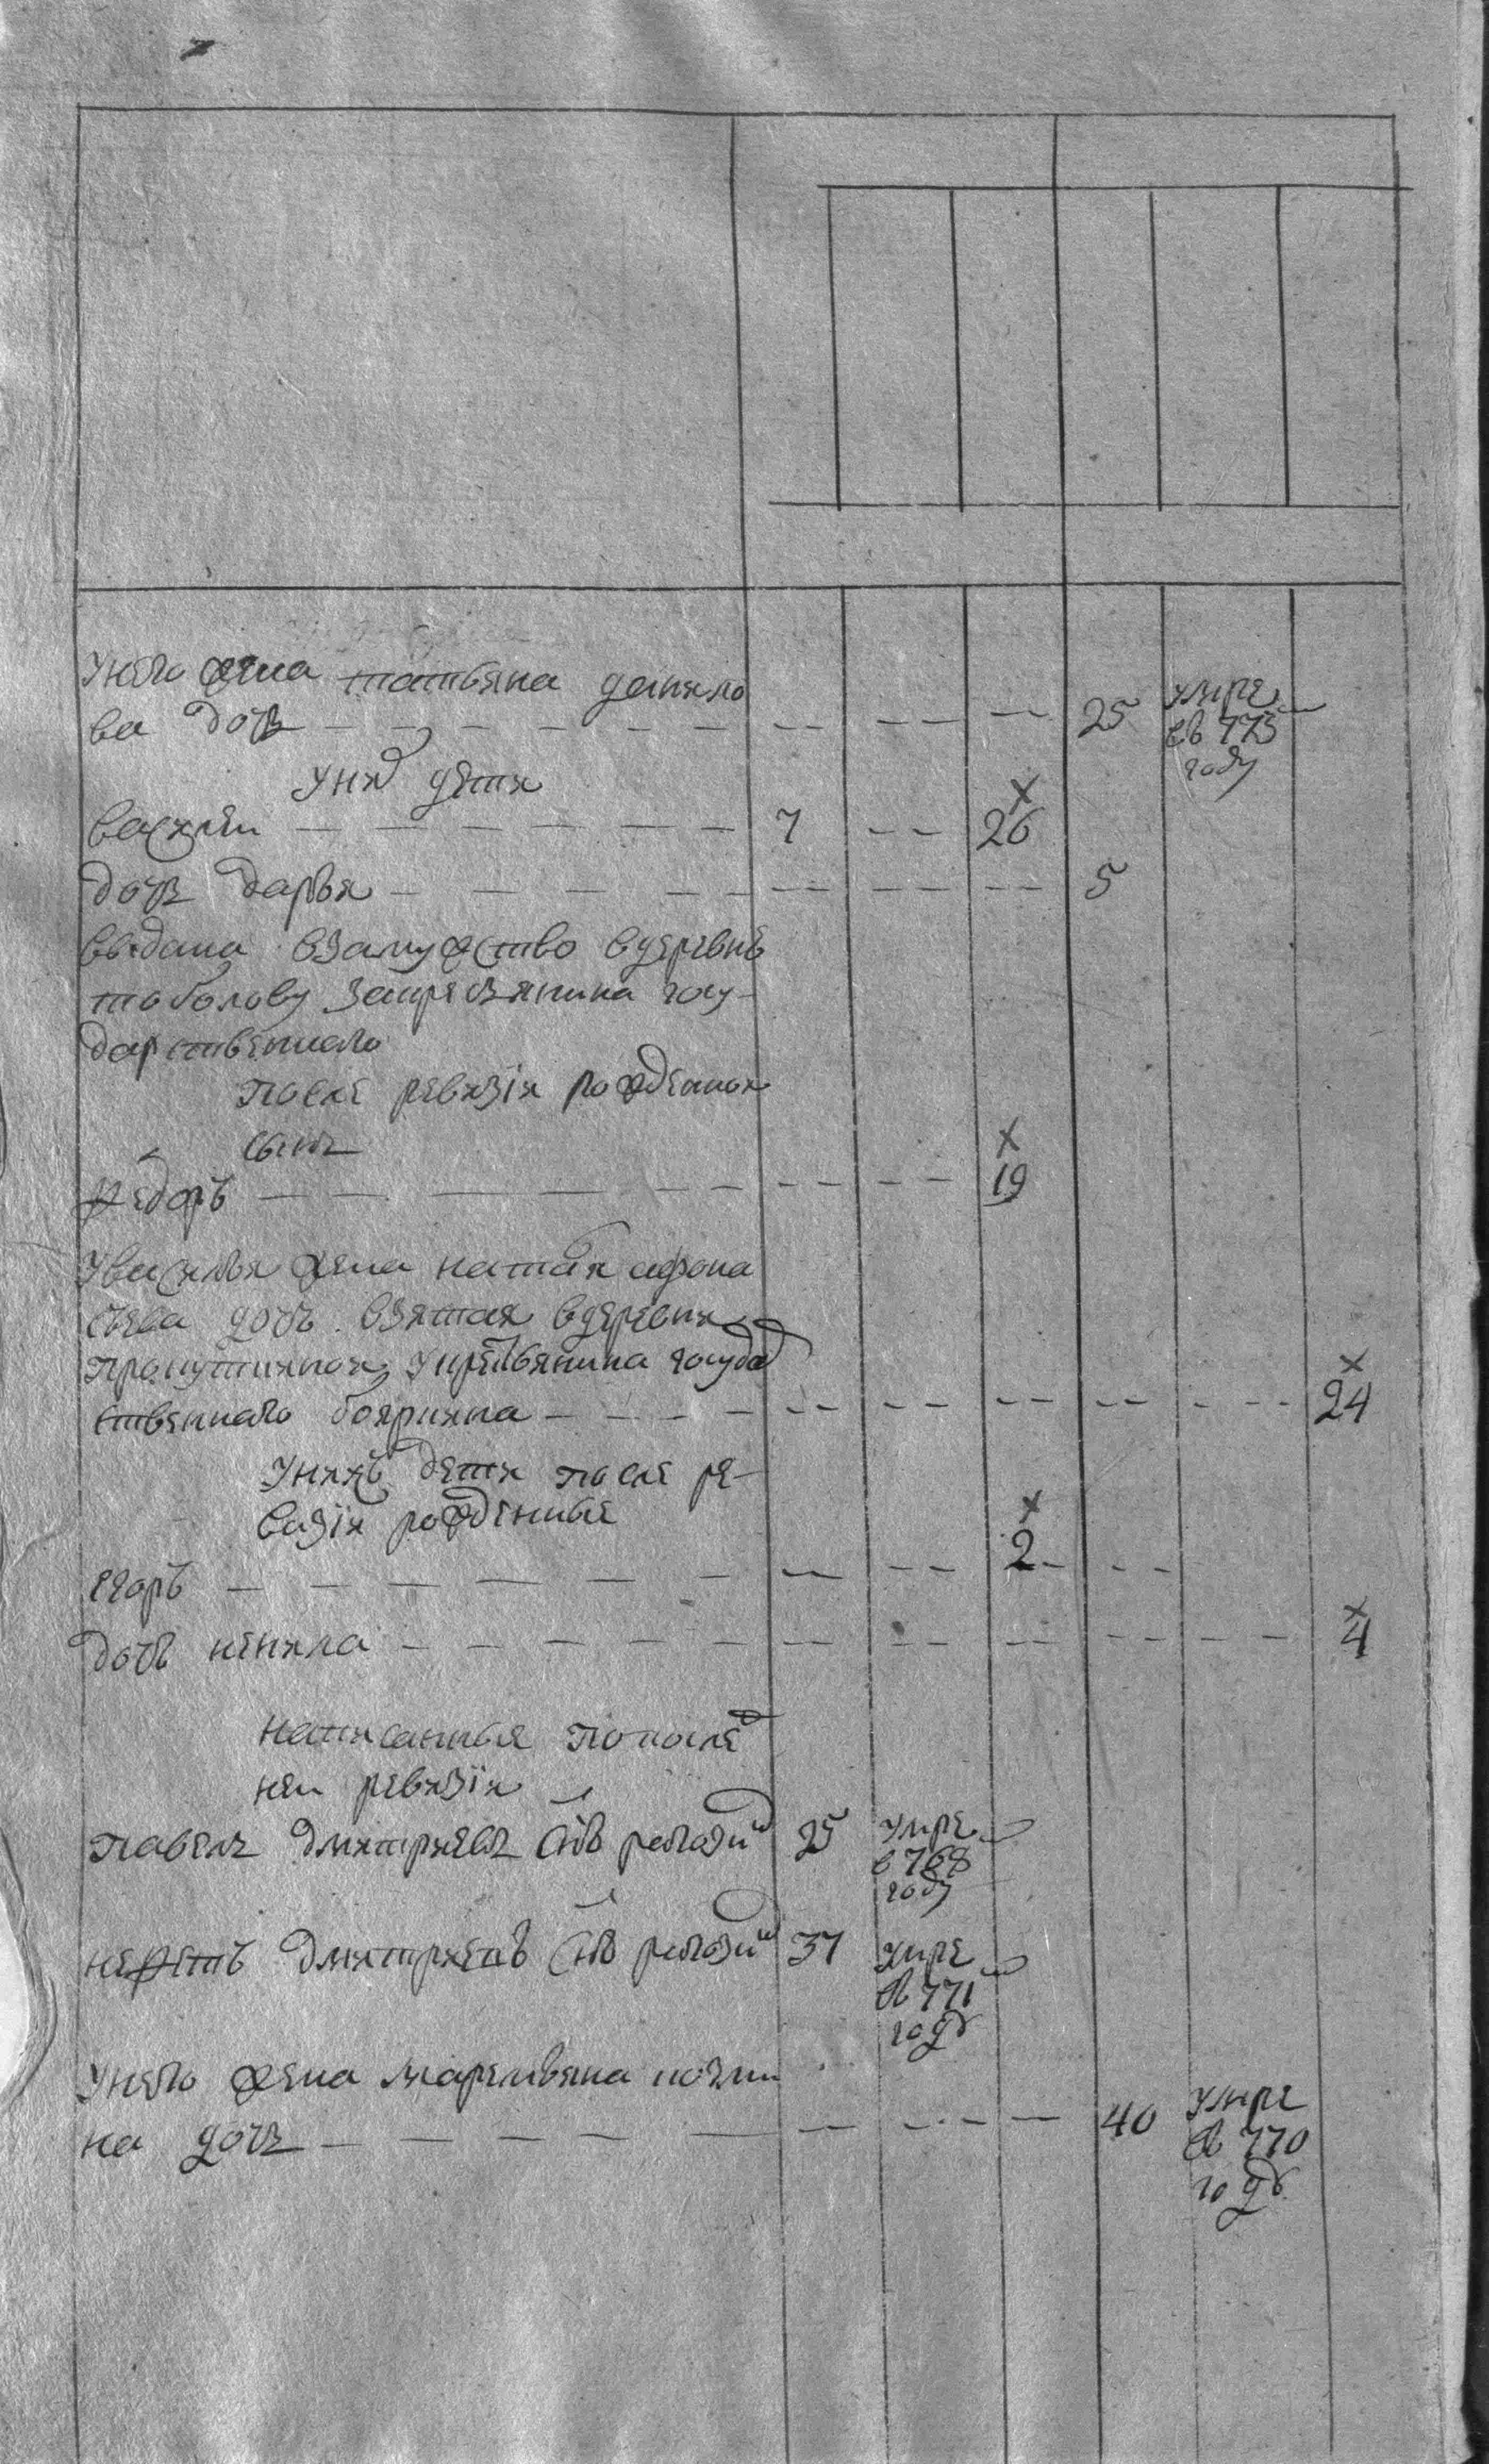 у него жена татьяна данило
ва дочь 25 умре
въ 775
году
у них дети
василеи 7 26
дочь дарья 5
выдана взамужство в деревнѣ
тоболову за крестьянина госу-
дарственнаго
после ревизiи рожденои
сынъ
федоръ 19
у василья жена наталья афона
сьева дочь взятая в деревни
у крестьянина государ
ственнаго бояркина 24
у них дети после ре-
визiи рожденные
егоръ 2
дочь ненила 4
написанныя по после
неи ревизiи
павелъ дмитриевъ снъ 25 умре
в 768
году
дмитриевъ снъ 37 умре
въ 771
годѣ
у него жена маремьяна козми
на дочь 40 умре
въ 770
годѣ